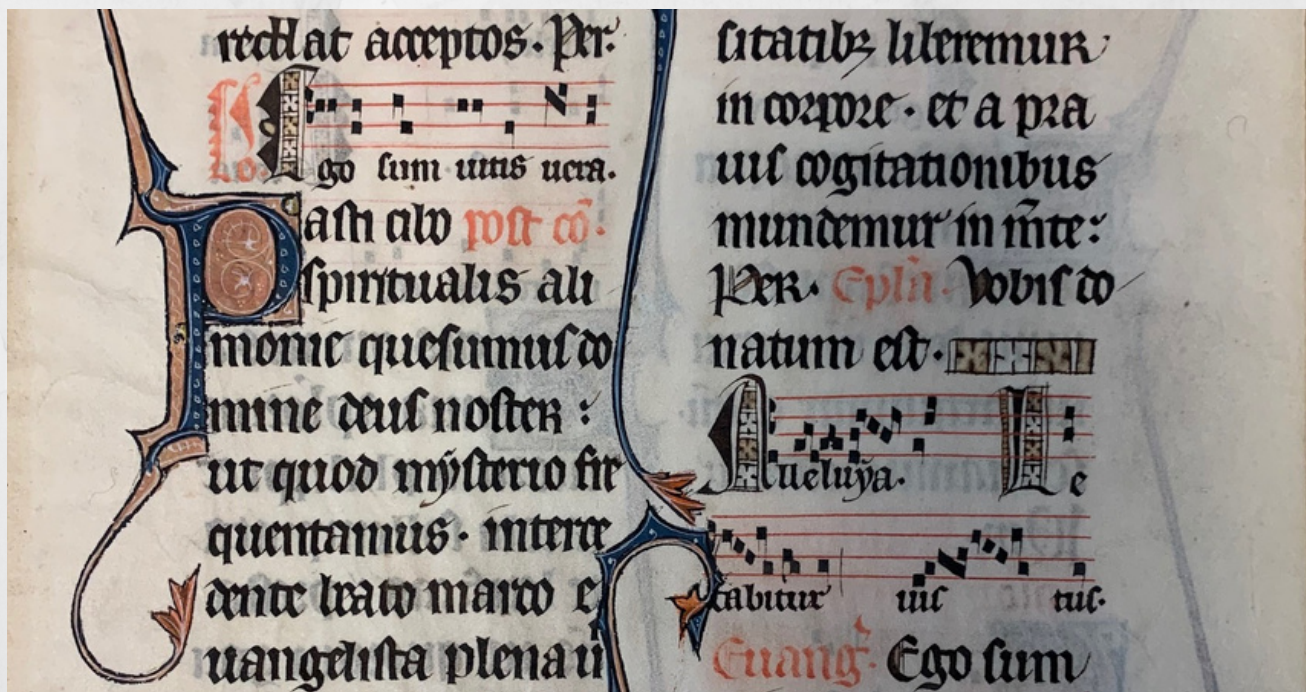 reddat acceptos. Per.
Co. Ego sum uitis uera.
Pasti cibo post cō.
spiritualis ali
monie quesumus do
mine deus noster :
ut quod mẏsterio fre
quentamus. interce
dente beato marco e
uangelista plena ui
sitatibꝫ liberemur
in corpore. et a pra
uis cogitationibus
mundemur in m̄te:
Per. Epl̄a. Vobis do
natum est.
Alleluẏa. Le
tabitur ius tus.
Euang. Ego sum